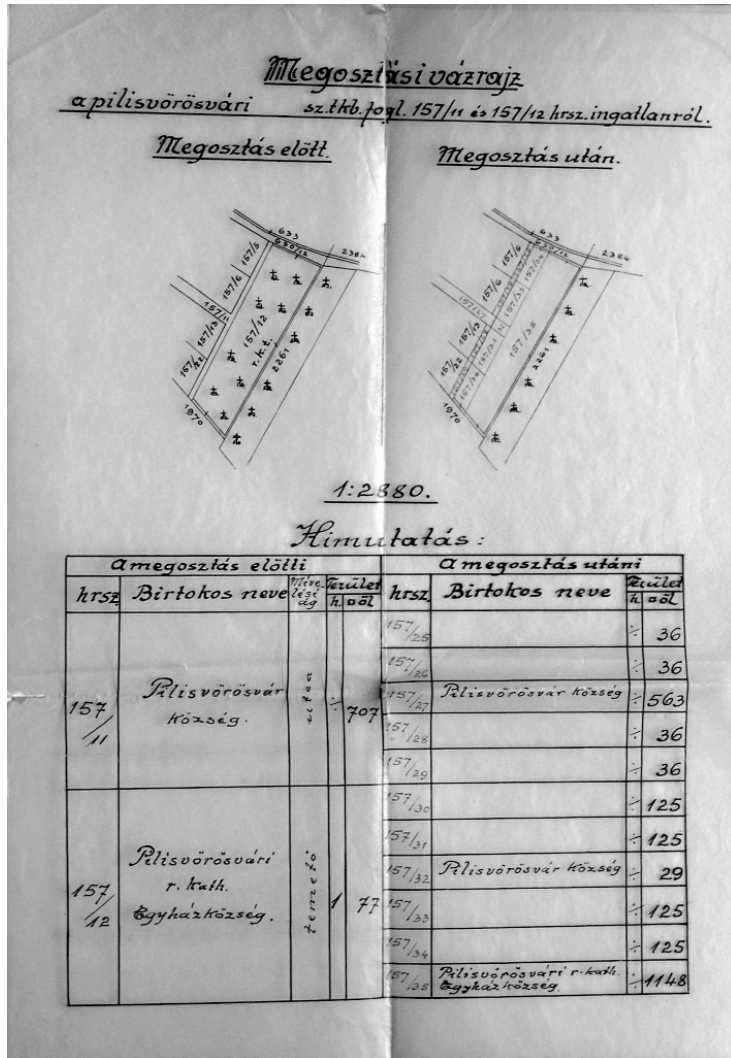 Megosztási vázrajz
a pilisvörösvári sz.tkb.fogl. 157/11 és 157/12 hrsz. ingatlanról.
Megosztás előtt. Megosztás után.
633
630/12
2384
157/5
157/6
157/11
157/13
157/22
157/12
r.k.t.
2261
1970
633
630/12
2384
157/5
157/6
157/27
157/13
157/22
157/34
157/33
157/31
157/30
157/35
2261
1970
1:2880.
Kimutatás:
A megosztás előtti A megosztás utáni
hrsz Birtokos neve Művelési ág Terület h. □öl hrsz. Birtokos neve Terület h □öl
157/11 Pilisvörösvár község. utca ÷ 707
157/25 ÷ 36
157/26 ÷ 36
157/27 Pilisvörösvár község ÷ 563
157/28 ÷ 36
157/29 ÷ 36
157/12 Pilisvörösvári r. kath. Egyházközség. temető 1 77
157/30 ÷ 125
157/31 ÷ 125
157/32 Pilisvörösvár község ÷ 29
157/33 ÷ 125
157/34 ÷ 125
157/35 Pilisvörösvári r. kath. Egyházközség. ÷ 1148